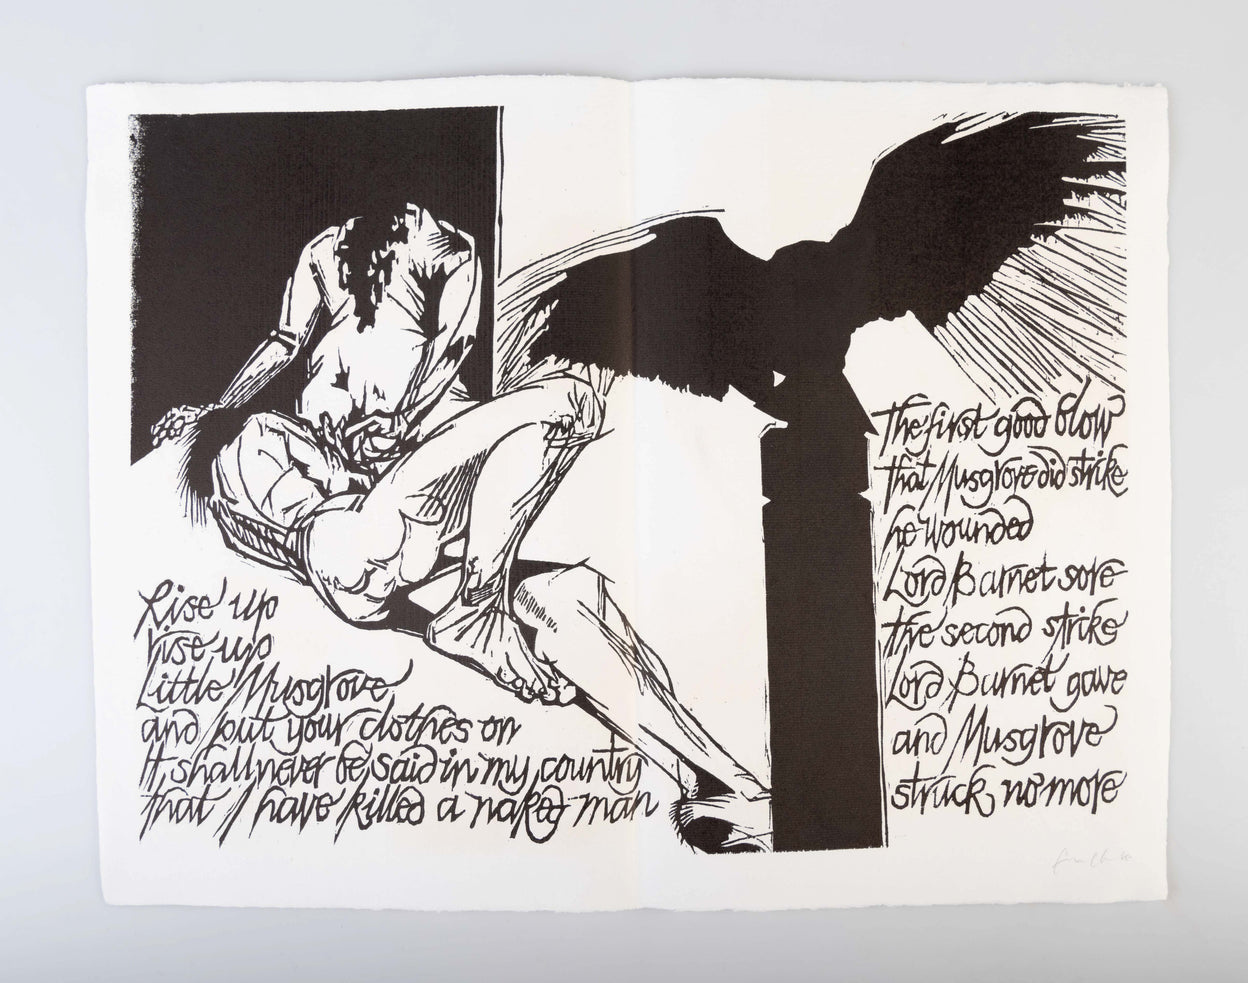 Rise up
rise up
Little Musgrove
and put your clothes on
It shall never be said in my country
that I have killed a naked man
The first good blow
that Musgrove did strike
he wounded
Lord Barnet sore
the second strike
Lord Barnet gave
and Musgrove
struck no more